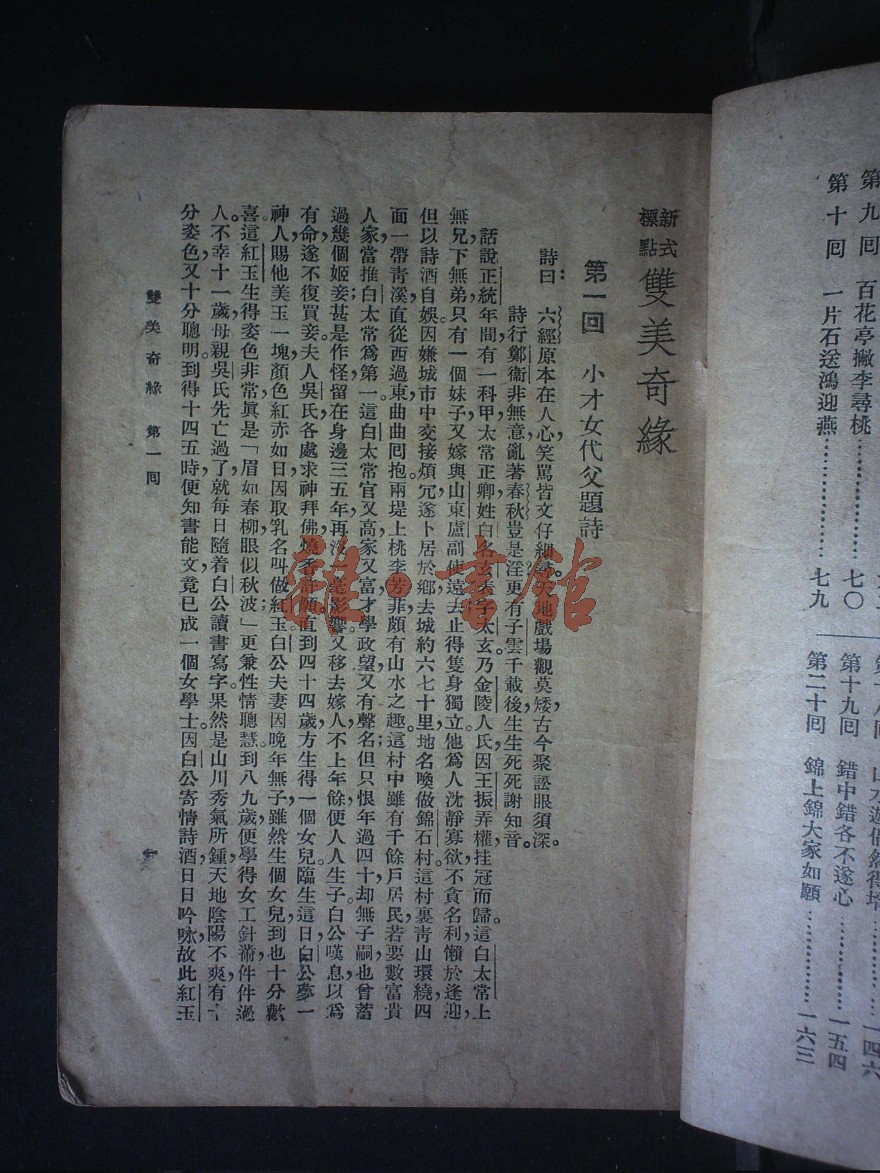 第九回　百花亭撇李尋桃
第十回　一片石送鴻迎燕…………七九
七〇
第十九回　錯中錯各不遂心…………一五四
第二十回　錦上錦大家如願…………一六三
一四六
新式標點　雙美奇緣
第一回　小才女代父題詩
詩曰：六經原本在人心，笑罵皆文仔細尋。天地戲場觀莫矮，古今聚訟眼須深。
詩行鄭衞非無意，亂著春秋豈是淫更有子雲千載後，生生死死謝知音。
話說正統年間，有一科甲太常正卿，姓白名玄表字太玄。乃金陵人氏，因王振弄權，挂冠而歸。這白太常上
無兄下無弟，只有一個妹子，又嫁與山東盧副使遠去，止得隻身獨立。他爲人沈靜寡欲，不貪名利，懶於逢迎，
但以詩酒自娛。因嫌城市中交接煩冗，遂卜居於鄉，去城約六七十里，地名喚做錦石村。這村裏青山環繞，四
面一帶青溪，直從西過東，曲曲回抱。兩堤上桃李芳菲，頗有山水之趣。這村中雖有千餘戶居民，若要數富貴
人家，當推白太常爲第一。這白太常官又高，家又富，才學政望，又有聲名；但只恨年過四十，却無子嗣，也曾蓄
過幾個姬妾；甚是作怪，留在身邊三五年，再沒一毫影響。又移去嫁人，不上年餘，便人人生子。白公嘆息，以爲
有命，遂不復買妾。夫人吳氏，各處求神拜佛，燒香許願，直到四十四歲，方生得一個女兒。臨生這日，白公夢一
神人，賜他美玉一塊，顏色紅赤如日，因取乳名叫做紅玉。白公夫妻因晚年無子，雖然生個女兒，到也十分歡
喜。這紅玉生得姿色非常，眞是「眉如春柳，眼似秋波」更兼性情聰慧。到八九歲，便學得女工針黹，件件過
人。不幸十一歲，母親吳氏先亡過了，就每日隨着白公讀書寫字。果然是山川秀氣所鍾，天地陰陽不爽，有十
分姿色，又十分聰明。到得十四五時，便知書能文，竟已成一個女學士。因白公寄情詩酒，日日吟咏，故此紅玉
雙美奇緣　第一回
雜·書館